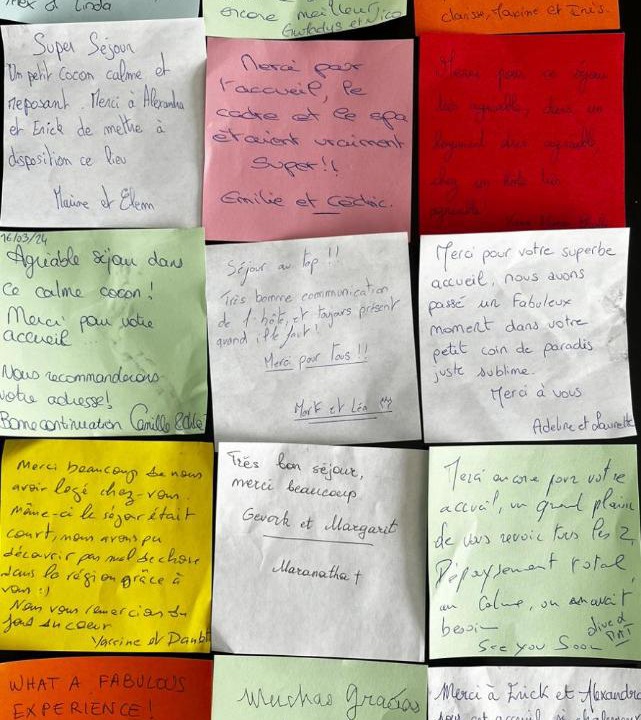 Alex & Linda
encore meilleur,
Gwladys et Nico
clarisse, Maxine et Inès.
Super Séjour
Un petit cocon calme et
reposant. Merci à Alexandra
et Erick de mettre à
disposition ce lieu
Marine et Etienn
Merci pour
l'accueil, le
cadre et le spa
étaient vraiment
super!!
Emilie et Cédric.
Merci pour ce séjour
très agréable, dans un
logement très agréable,
chez un hôte très
agréable
16/03/24
Agréable séjour dans
ce calme cocon!
Merci pour votre
accueil
Nous recommanderons
votre adresse!
Bonne continuation Camille
Séjour au top !!
Très bonne communication
de l'hôte, et toujours présent
quand il le faut!
Merci pour Tous !!
Mark et Léa
Merci pour votre superbe
accueil, nous avons
passé un fabuleux
moment dans votre
petit coin de paradis
juste sublime.
Merci à vous
Adeline et Laurette
Merci beaucoup de nous
avoir logé chez-vous.
même-ci le séjour était
court, nous avons pu
découvrir pas mal de chose
dans la région grâce à
vous :)
Nous vous remercions du
fond du coeur
Yassine et
Très bon séjour,
merci beaucoup
Gevork et Margarit
Maranatha †
Merci encore pour votre
accueil, un grand plaisir
de vous revoir tous les 2,
Dépaysement total,
au calme, on en avait
besoin
See you Soon
WHAT A FABULOUS
EXPERIENCE!
Muchas Gracias
Merci à Erick et Alexandra
pour cet accueil